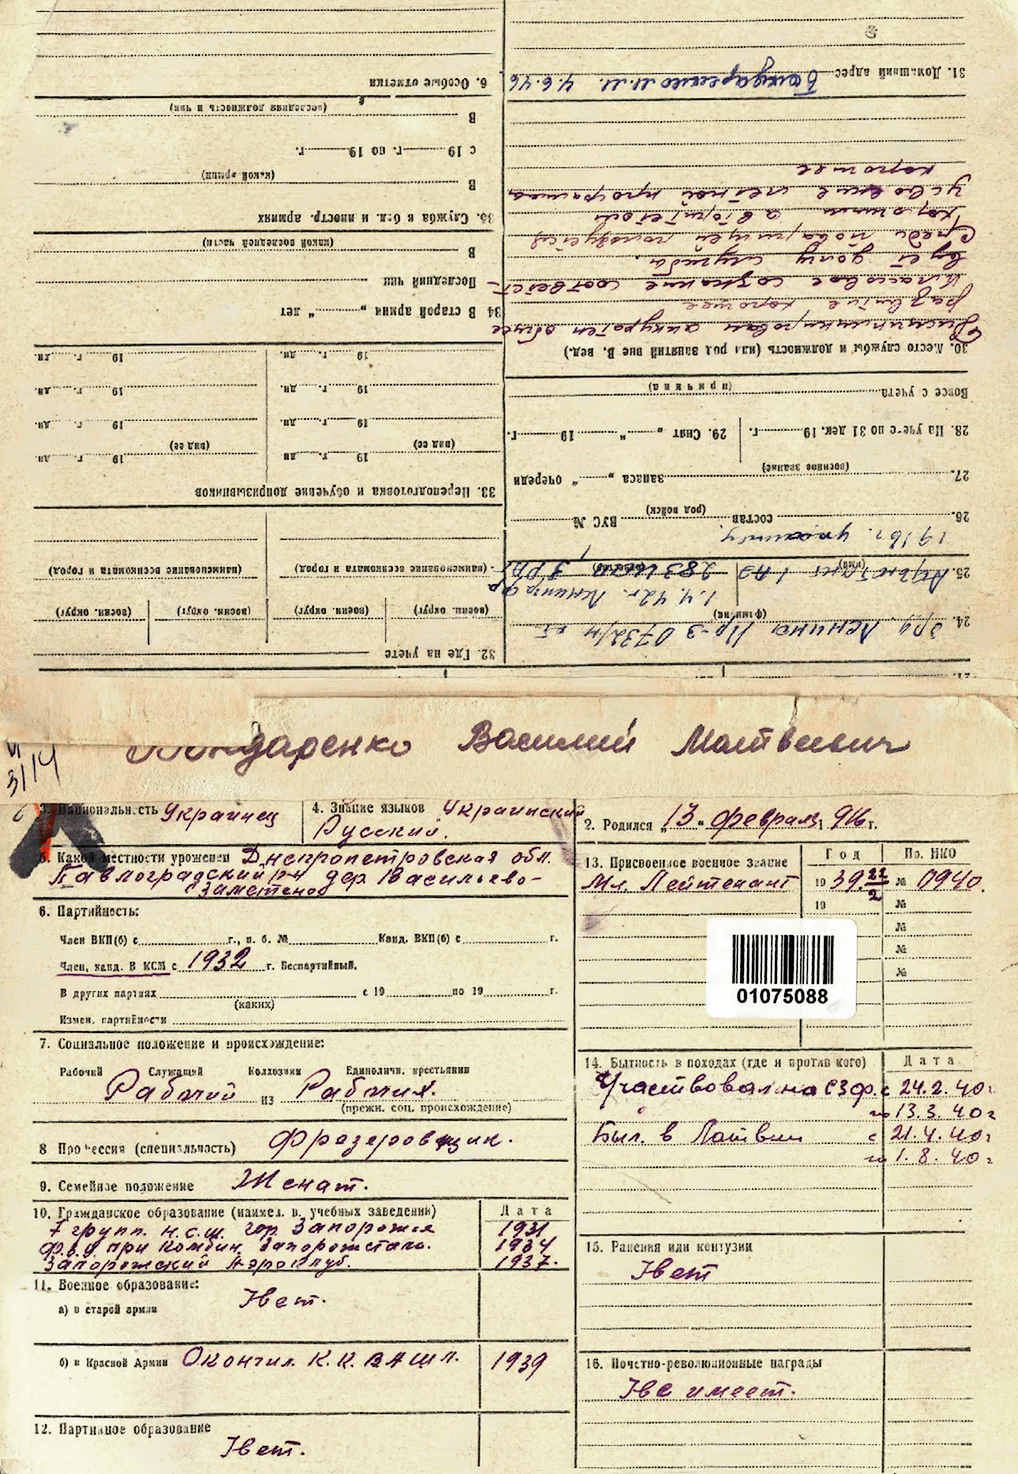 Бондаренко Василий Матвеевич
3/14
3. Национальность Украинец
4. Знание языков Украинский
Русский.
5. Какой местности уроженец Днепропетровская обл.
Павлоградский р-н дер Васильево-
6. Партийность:
Член ВКП(б) с г., п. б. № Канд. ВКП(б) с г.
Член, канд. В КСМ с 1932 г. Беспартийный.
В других партиях с 19 по 19 г.
(каких)
Измен. партийности
7. Социальное положение и происхождение:
Рабочий Служащий Колхозник Единоличн. крестьянин
Рабочий из Рабочих.
(прежн. соц. происхождение)
8 Профессия (специальность) Фрезеровщик.
9. Семейное положение Женат.
10. Гражданское образование (наимен. в. учебных заведений) Дата
7 групп. н.с.ш. гор Запорожья 1931
при Комбин. Запорожсталь. 1934
Запорожский Аэроклуб. 1937.
11. Военное образование:
а) в старой армии Нет.
б) в Красной Армии Окончил К.К. ВАШЛ. 1939
12. Партийное образование
Нет.
2. Родился „13“ февраля 1916 г.
13. Присвоенное военное звание Год Пр. НКО
Мл. Лейтенант 1939 22/2 № 0940.
19 №
№
№
№
01075088
14. Бытность в походах (где и против кого) Дата
Участвовал на СЗФ. с 24.2.40г
по 13.3.40г
Был. в Латвии с 21.4.40г
по 1.8.40г
15. Ранения или контузии
Нет
16. Почетно-революционные награды
Не имеет.
24. (фамилия)
25. (имя) Адъютант 1 АЭ
1.4.42г.
1916г. украинец
26. состав (род войск) ВУС №
27. (военное звание) запаса „ “ очереди
28. На учете по 31 дек. 19 г. 29. Снят „ “ 19 г.
Вовсе с учета
(причина)
30. Место службы и должность (или род занятий вне В. вед.)
Дисциплинирован аккуратен общее
развитие хорошее
классовое сознание соответст-
вует долгу службы.
Среди товарищей пользуется
хорошим авторитетом
усвоение летной программы
хорошее
31. Домашний адрес Бондаренко М.М. 4.6.46
32. Где на учете
(воен. округ) (воен. округ) (воен. округ) (воен. округ)
(наименование военкомата и город) (наименование военкомата и город)
33. Переподготовка и обучение допризывников
19 г. дн 19 г. дн.
(вид ее) (вид ее)
19 г. дн. 19 г. дн.
19 г. дн. 19 г. дн.
19 г. дн. 19 г. дн
34 В старой армии „ “ лет
Последний чин
В
(какой последней части)
35. Служба в бел. и иностр. армиях
В
(какой армии)
с 19 г. по 19 г.
В
(последняя должность и чин)
6. Особые отметки